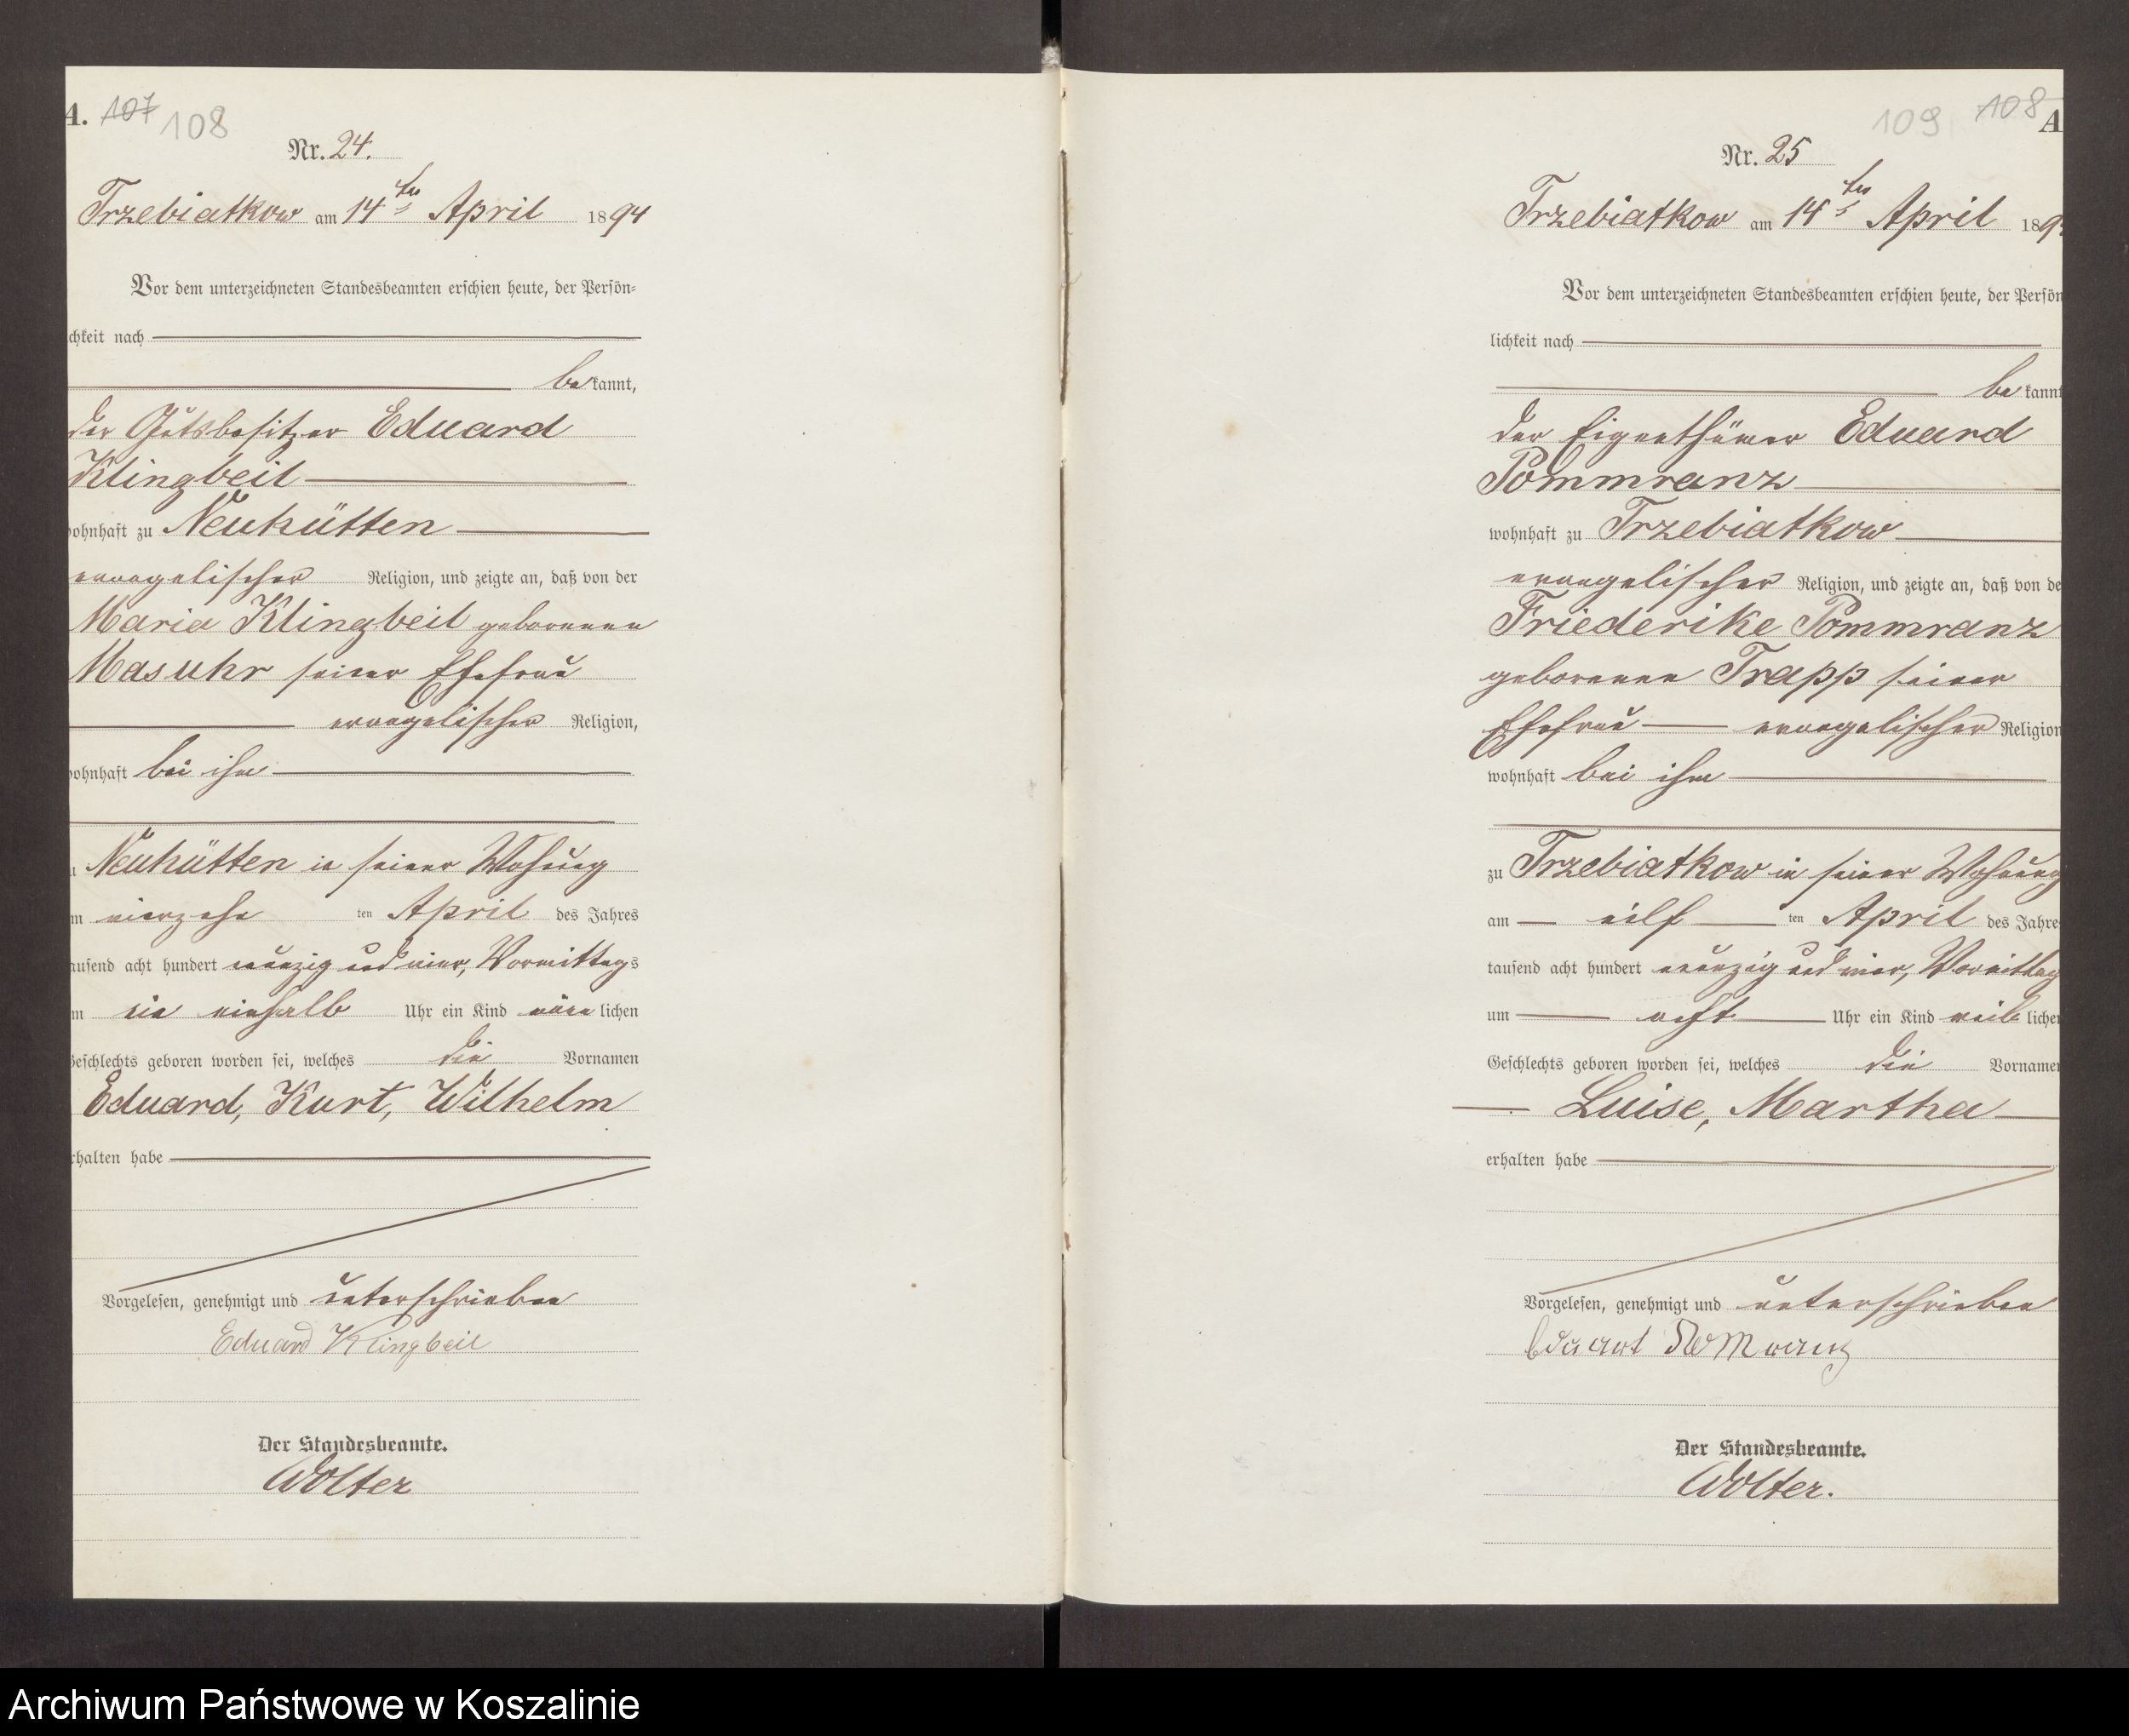 A. 107 108
Nr. 24.
Trzebiatkow am 14ten April 1894
Vor dem unterzeichneten Standesbeamten erschien heute, der Persön-
chkeit nach
bekannt,
der Gutsbesitzer Eduard
Klingbeil
wohnhaft zu Neuhütten
evangelischer Religion, und zeigte an, daß von der
Maria Klingbeil geborenen
Masuhr seiner Ehefrau
evangelischer Religion,
wohnhaft bei ihm
Neuhütten in seiner Wohnung
m vierzehn ten April des Jahres
ausend acht hundert neunzig und vier, Vormittags
m ein einhalb Uhr ein Kind männlichen
Geschlechts geboren worden sei, welches die Vornamen
Eduard, Kurt, Wilhelm
rhalten habe
Vorgelesen, genehmigt und unterschrieben
Eduard Klingbeil
Der Standesbeamte.
Wolter
109 108 A
Nr. 25
Trzebiatkow am 14ten April 189
Vor dem unterzeichneten Standesbeamten erschien heute, der Persön
lichkeit nach
bekannt
der Eigenthümer Eduard
Pommranz
wohnhaft zu Trzebiatkow
evangelischer Religion, und zeigte an, daß von de
Friederike Pommranz
geborenen Trapp seiner
Ehefrau evangelischer Religion
wohnhaft bei ihm
zu Trzebiatkow in seiner Wohnung
am eilf ten April des Jahre
tausend acht hundert neunzig und vier, Vormittag
um acht Uhr ein Kind weiblichen
Geschlechts geboren worden sei, welches die Vornamen
Luise, Martha
erhalten habe
Vorgelesen, genehmigt und unterschrieben
Eduart
Der Standesbeamte.
Wolter.
Archiwum Państwowe w Koszalinie